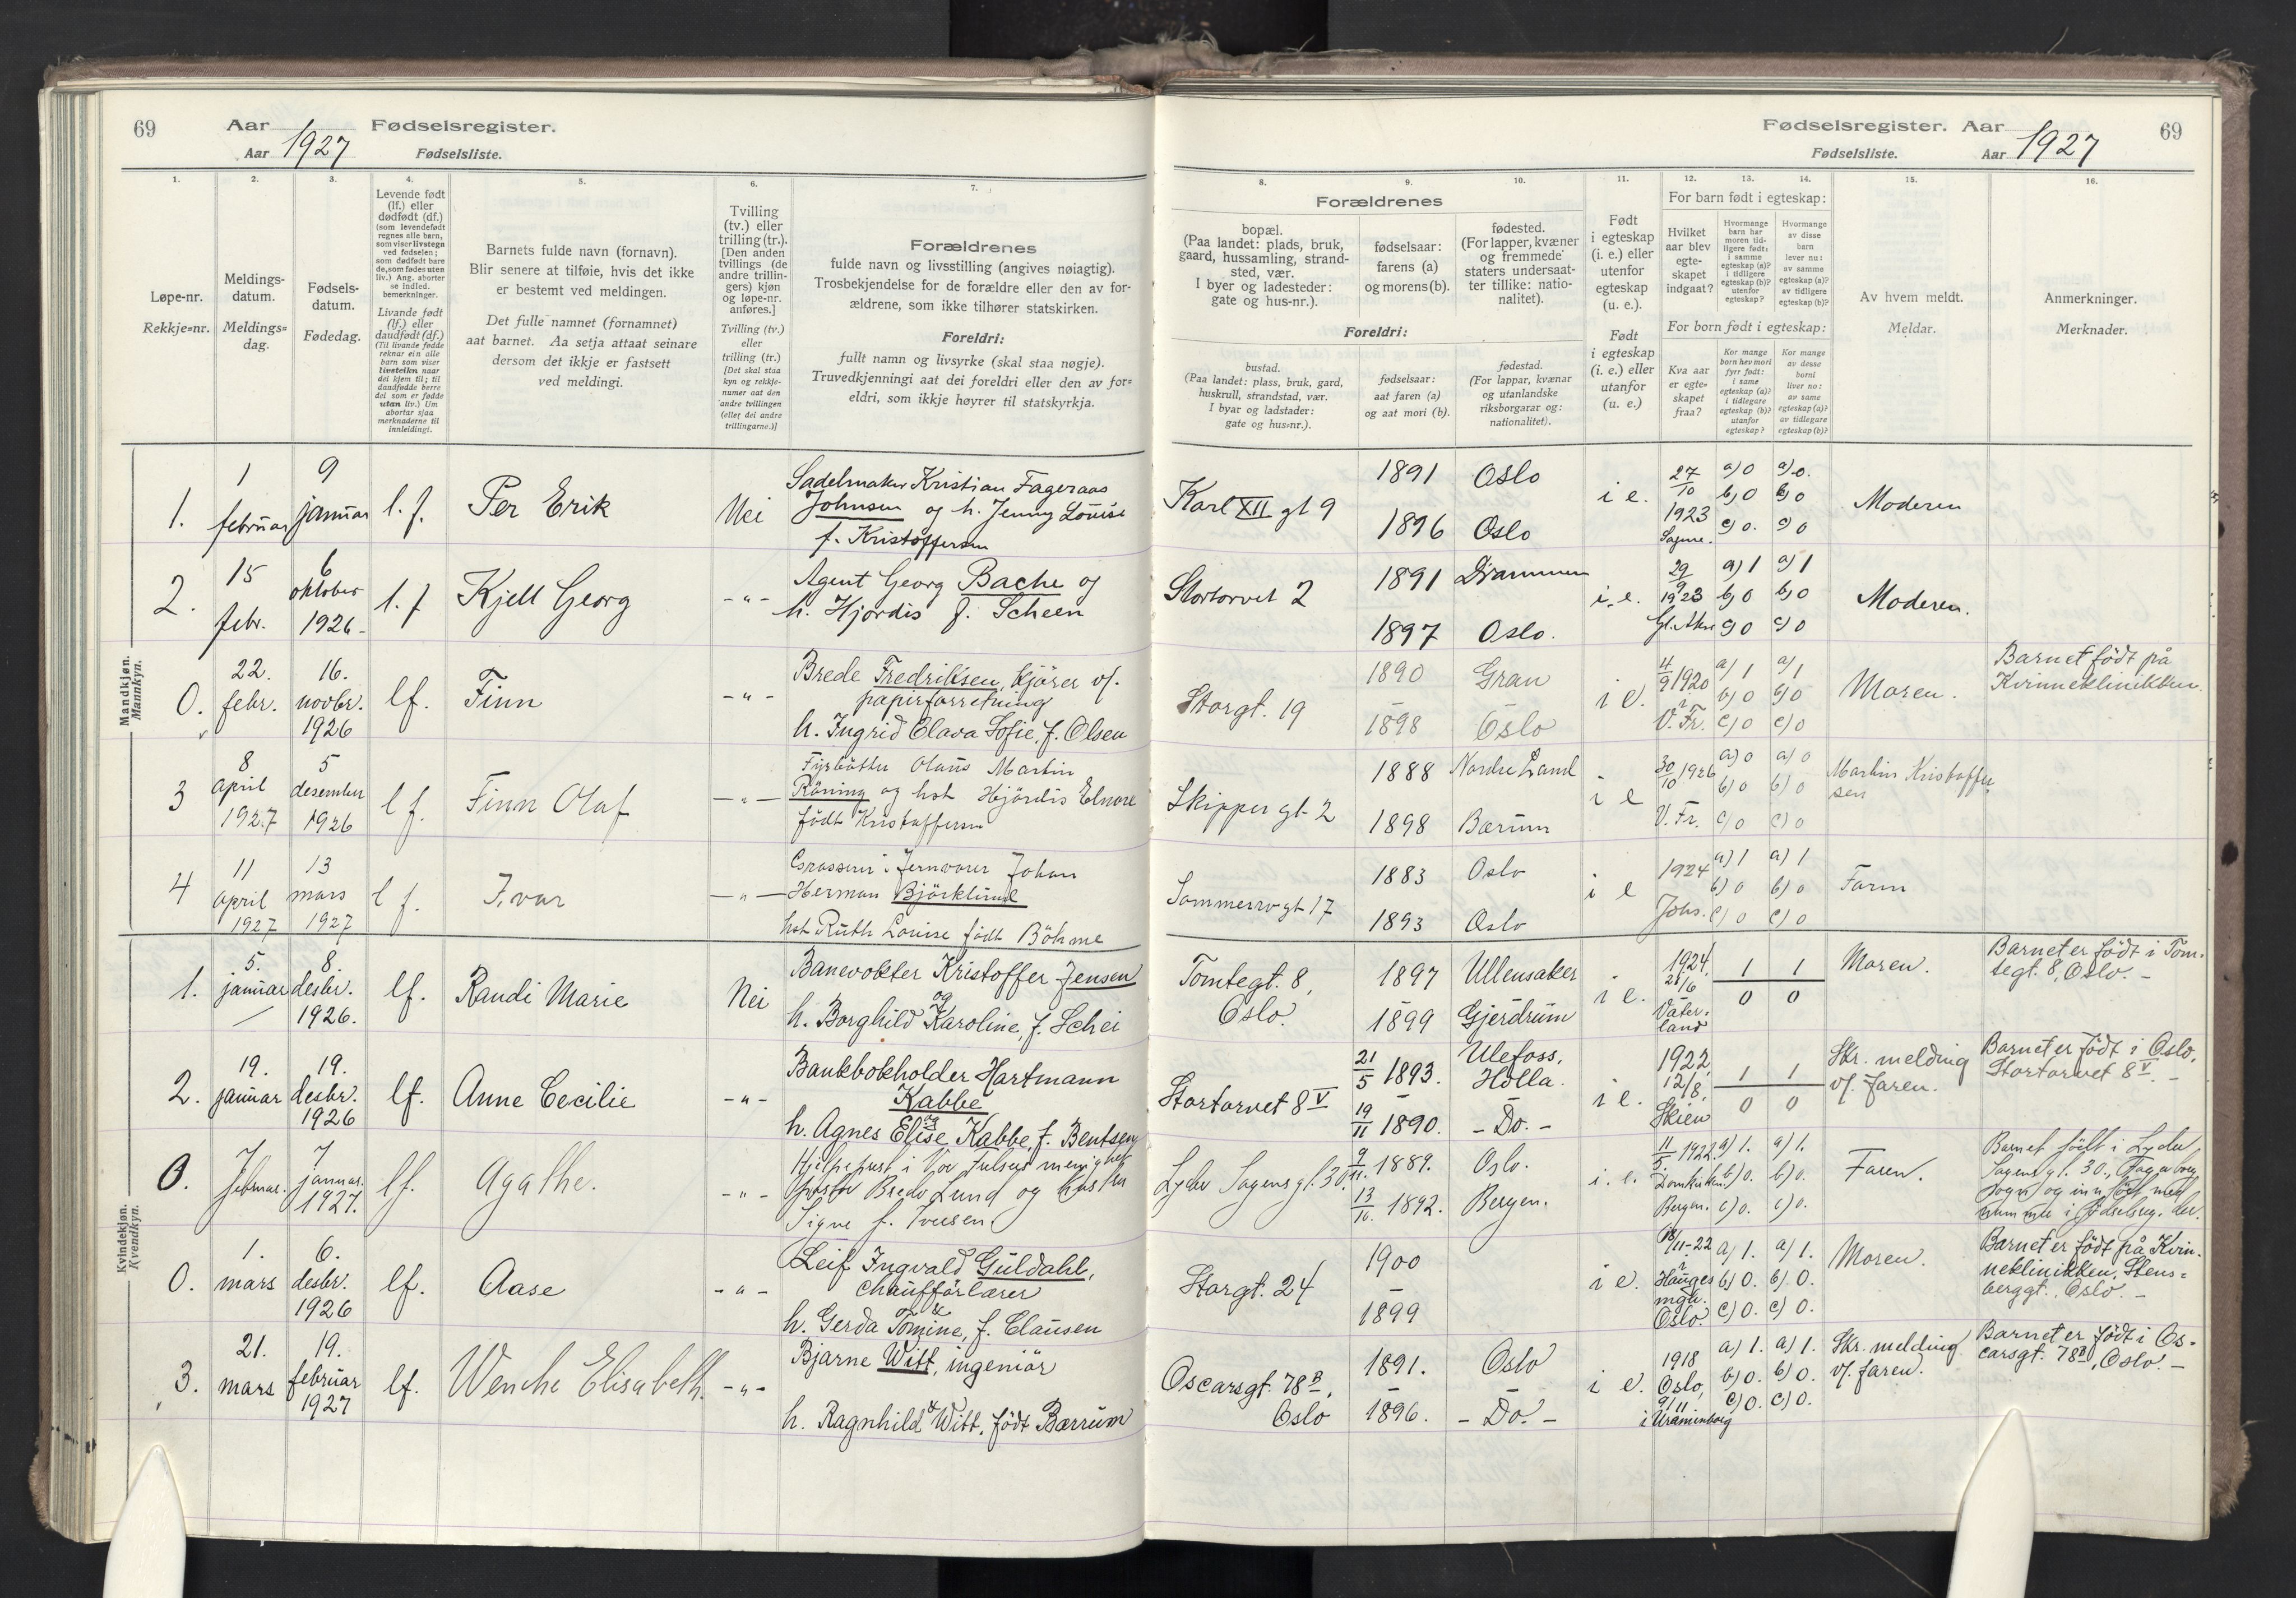 69
Aar
Fødselsregister.
Aar 1927
Fødselsliste.
1.
2.
3.
4.
5.
6.
7.
Løpe-nr.
Rekkje=nr.
Meldings-
datum.
Meldings=
dag.
Fødsels-
datum.
Fødedag.
Levende født
(lf.) eller
dødfødt (df.)
(som levendefødt
regnes alle barn,
som viser livstegn
ved fødselen;
som dødfødt bare
de, som fødes uten
liv.) Ang. aborter
se indled.
bemerkninger.
Livande født
(lf.) eller
daudfødt (df.)
(Til livande fødde
reknar ein alle
barn som viser
livsteikn naar
dei kjem til; til
daudfødde berre
dei som er fødde
utan liv.) Um
abortar sjaa
merknaderne til
innleidingi.
Barnets fulde navn (fornavn).
Blir senere at tilføie, hvis det ikke
er bestemt ved meldingen.
Det fulle namnet (fornamnet)
aat barnet. Aa setja attaat seinare
dersom det ikkje er fastsett
ved meldingi.
Tvilling
(tv.) eller
trilling (tr.).
[Den anden
tvillings (de
andre trillin-
gers) kjøn
og løpe-nr.
anføres.]
Tvilling (tv.)
eller
trilling (tr.)
[Det skal staa
kyn og rekkje-
numer aat den
andre tvillingen
(eller dei andre
trillingarne.)]
Forældrenes
fulde navn og livsstilling (angives nøiagtig).
Trosbekjendelse for de forældre eller den av for-
ældrene, som ikke tilhører statskirken.
Foreldri:
fullt namn og livsyrke (skal staa nøgje).
Truvedkjenningi aat dei foreldri eller den av for=
eldri, som ikkje høyrer til statskyrkja.
Mandkjøn.
Mannkyn.
1.
1
februar
9
januar
l. f.
Per Erik
Nei
Sadelmaker Kristian Fageraas
Johnsen og h. Jenny Louise
f. Kristoffersen
2.
15
febr.
6
oktober
1926-
l. f
Kjell Georg
- " -
Agent Georg Bache og
h. Hjørdis f. Scheen
0.
22.
febr.
16.
novbr.
1926
lf.
Finn
- " -
Brede Fredriksen, kjører v/.
papirforretning
h. Ingrid Olava Sofie, f. Olsen
3
8
april
1927
5
desember
1926
l f.
Finn Olaf
- " -
Fyrbøter Olaus Martin
Röning og hst Hjørdis Elnore
født Kristoffersen
4
11
april
1927
13
mars
1927
l f.
Ivar
- " -
Grosserer i Jernvarer Johan
Herman Björklund
hst Ruth Louise født Böhme
Kvindekjøn.
Kvendkyn.
1.
5.
januar
8.
desbr.
1926.
lf.
Randi Marie
Nei
Banevokter Kristoffer Jensen
og
h. Borghild Karoline, f. Schei
2.
19.
januar
19.
desbr.
1926
lf.
Anne Cecilie
- " -
Bankbokholder Hartmann
Kabbe
og
h. Agnes Elise Kabbe, f. Bentsen
0.
7
februar.
7
januar.
1927.
lf.
Agathe.
- " -
Hjelpeprest i Vor Frelsers menighet
Bredo Lund og hustru
Signe f. Iversen
0.
1.
mars
6.
desbr.
1926
lf.
Aase
- " -
Leif Ingvald Guldahl,
chaufförlærer
&
h. Gerda Tomine, f. Clausen
3.
21.
mars
19.
februar
1927
lf.
Wenche Elisabeth.
- " -
Bjarne Witt, ingeniør
&
h. Ragnhild Witt, født Bærrum
Fødselsregister. Aar
69
Fødselsliste.
Aar 1927
8.
9.
10.
11.
12.
13.
14.
15.
16.
Forældrenes
bopæl.
(Paa landet: plads, bruk,
gaard, hussamling, strand-
sted, vær.
I byer og ladesteder:
gate og hus-nr.).
fødselsaar:
farens (a)
og morens (b).
fødested.
(For lapper, kvæner
og fremmede
staters undersaat-
ter tillike: natio-
nalitet).
Foreldri:
bustad.
(Paa landet: plass, bruk, gard,
huskrull, strandstad, vær.
I byar og ladstader:
gate og hus=nr.).
fødselsaar:
aat faren (a)
og aat mori (b).
fødestad.
(For lappar, kvænar
og utanlandske
riksborgarar og:
nationalitet).
Født
i egteskap
(i. e.) eller
utenfor
egteskap
(u. e.).
Født
i egteskap
(i. e.) eller
utanfor
egteskap
(u. e.)
For barn født i egteskap:
Hvilket
aar blev
egte-
skapet
indgaat?
Hvormange
barn har
moren tid-
ligere født:
i samme
egteskap (a)?
i tidligere
egteskap (b)?
utenfor
egteskap?
Hvormange
av disse
barn
lever nu:
av samme
egteskap (a)?
av tidligere
egteskap (b)?
For born født i egteskap:
Kva aar
er egte=
skapet
fraa?
Kor mange
born hev mori
fyrr født:
i same
egteskap (a)?
i tidlegare
egteskap (b)?
utanfor
egteskap?
Kor mange
av desse
borni
liver no:
av same
egteskap (a)?
av tidlegare
egteskap (b)?
Av hvem meldt.
Meldar.
Anmerkninger.
Merknader.
Karl XII gt 9
1891
1896
Oslo
Oslo
i e.
27
10
1923
Sagene.
a) 0
b) 0
c) 0.
a) 0.
b) 0
c) 0
Moderen
Stortorvet 2
1891
1897
Drammen
Oslo.
i. e.
29
9
1923
Gl. Aker
a) 1
b) 0
c) 0
a) 1
b) 0
c) 0
Moderen.
Storgt. 19
1890
-
1898
Gran
-
Oslo
i e.
4
9 1920
V. Fr.
a) 1
b) 0
c) 0
a) 1
b) 0
c) 0
Moren.
Barnet født på
Kvinneklinikken.
Skipper gt 2
1888
1898
Nordre Land
Bærum
i e
30
10 1926
V. Fr.
a) 0
b) 0
c) 0
a) 0
b) 0
c) 0
Martin Kristoffer
sen
Sommerrogt 17
1883
1893
Oslo
Oslo
i e
1924
Johs.
a) 1
b) 0
c) 0
a) 1
b) 0
c) 0
Faren
Tomtegt. 8,
Oslo.
1897
-
1899
Ullensaker
-
Gjerdrum
i e.
1924.
28/6
Vater-
land
1 1
0 0
Moren.
Barnet er født i Tom-
tegt. 8, Oslo. -
Stortorvet 8 V
21
5 1893.
19
11 1890.
Ulefoss,
Holla.
- Do. -
i e.
1922.
12/8,
Skien
1 1
0 0
Skr. melding
v/. faren.
Barnet er født i Oslo,
Stortorvet 8 V. -
Lyder Sagens gt. 30.
9
11. 1889.
13
10. 1892.
Oslo.
Bergen.
i. e.
11
5. 1922.
Domkirken
Bergen.
a) 1.
b) 0.
c) 0.
a) 1.
b) 0.
c) 0.
Faren.
Barnet født i Lyder
Sagens gt. 30., Fagerborg
sogn og innført med
nummer i fødselsreg. der.
Storgt. 24
1900
-
1899
i e.
18/11-22
i
Hauges
mgh.
Oslo.
a) 1.
b) 0.
c) 0.
a) 1.
b) 0.
c) 0.
Moren.
Barnet er født på Kvin-
neklinikken, Stens=
berggt., Oslo. -
Oscarsgt. 78 B,
Oslo
1891.
-
1896.
Oslo
-
- Do. -
i e.
1918
Oslo,
9/11
i Uranienborg
a) 1.
b) 0.
c) 0.
a) 1.
b) 0.
c) 0.
Skr. melding
v/. faren.
Barnet er født i Os-
carsgt. 78 B, Oslo. -